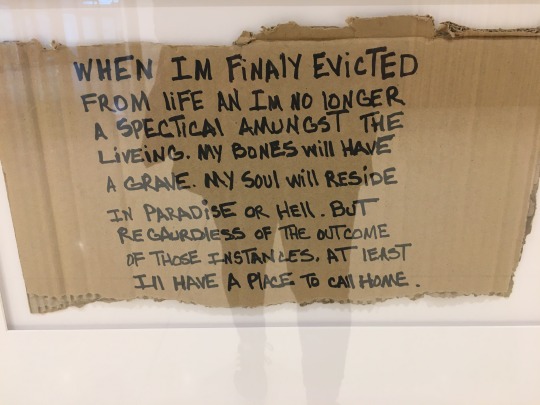 WHEN IM FINALY EVICTED
FROM LIFE AN IM NO LONGER
A SPECTICAL AMUNGST THE
LIVEING. MY BONES WILL HAVE
A GRAVE. MY SOUL WILL RESIDE
IN PARADISE OR HELL. BUT
REGAURDLESS OF THE OUTCOME
OF THOSE INSTANCES. AT LEAST
ILL HAVE A PLACE TO CALL HOME.